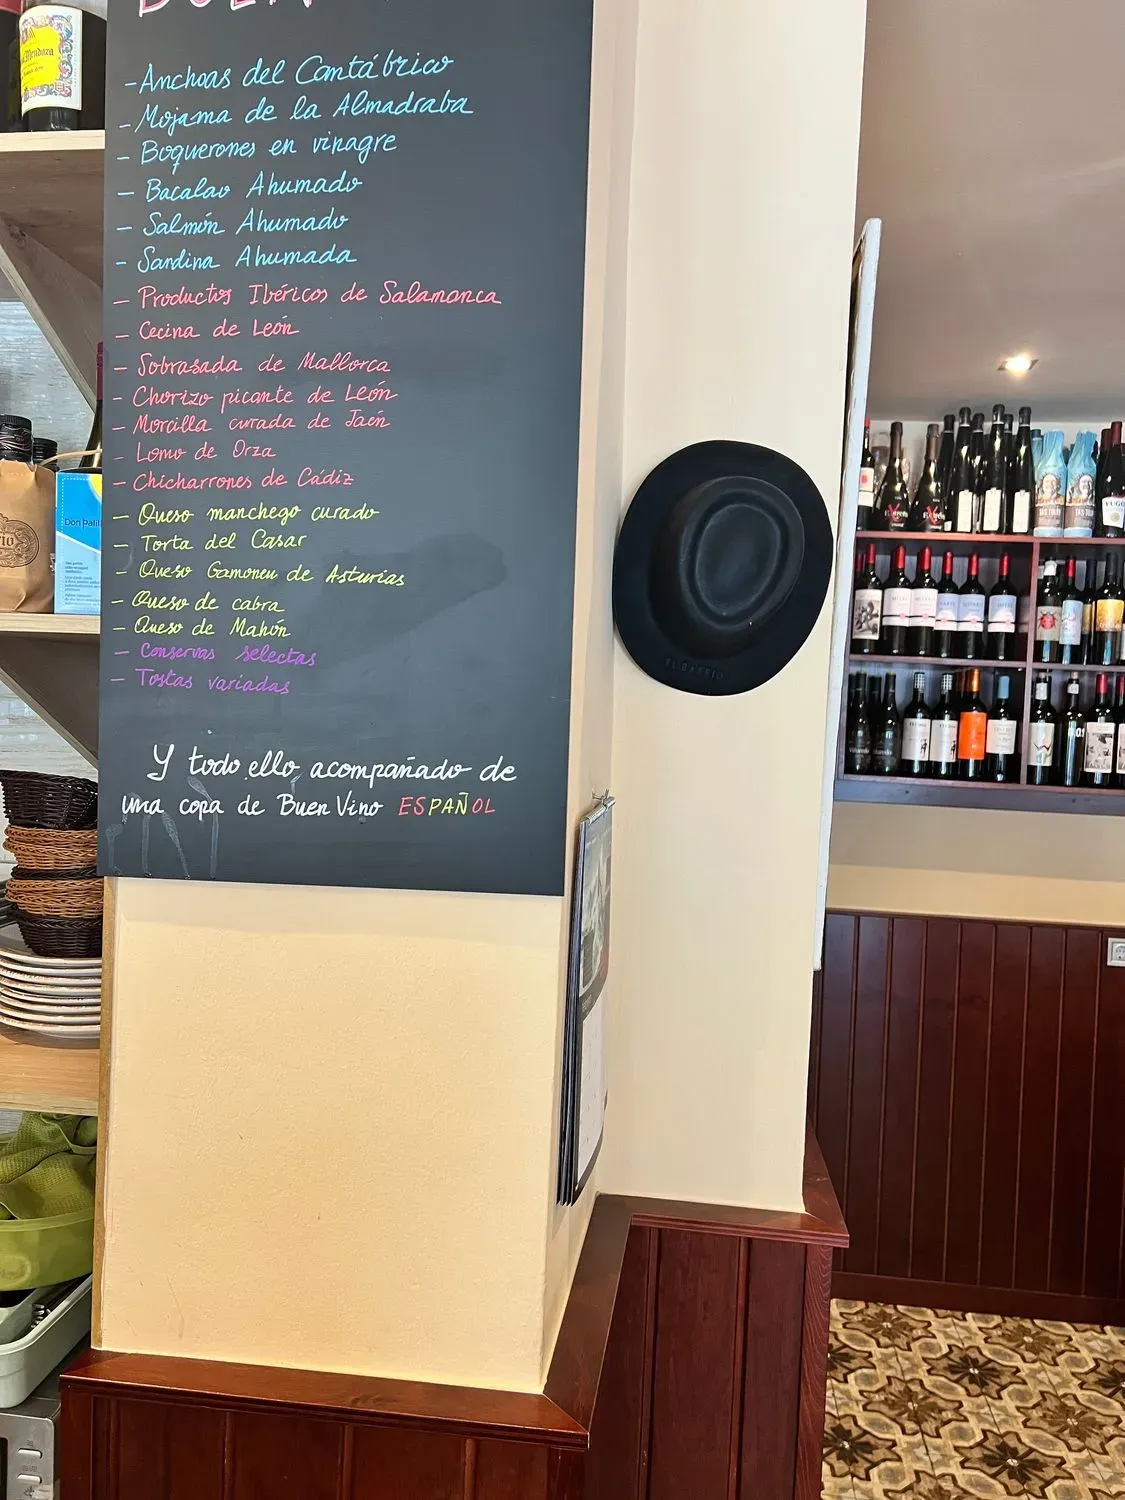 BUEN
-Anchoas del Cantábrico
- Mojama de la Almadraba
- Boquerones en vinagre
- Bacalao Ahumado
- Salmón Ahumado
- Sardina Ahumada
- Productos Ibéricos de Salamanca
- Cecina de León
- Sobrasada de Mallorca
- Chorizo picante de León
- Morcilla curada de Jaén
- Lomo de Orza
- Chicharrones de Cádiz
- Queso manchego curado
- Torta del Casar
- Queso Gamoneu de Asturias
- Queso de cabra
- Queso de Mahón
- Conservas selectas
- Tostas variadas
Y todo ello acompañado de
una copa de Buen Vino ESPAÑOL
Don Palill
EL BARRIO